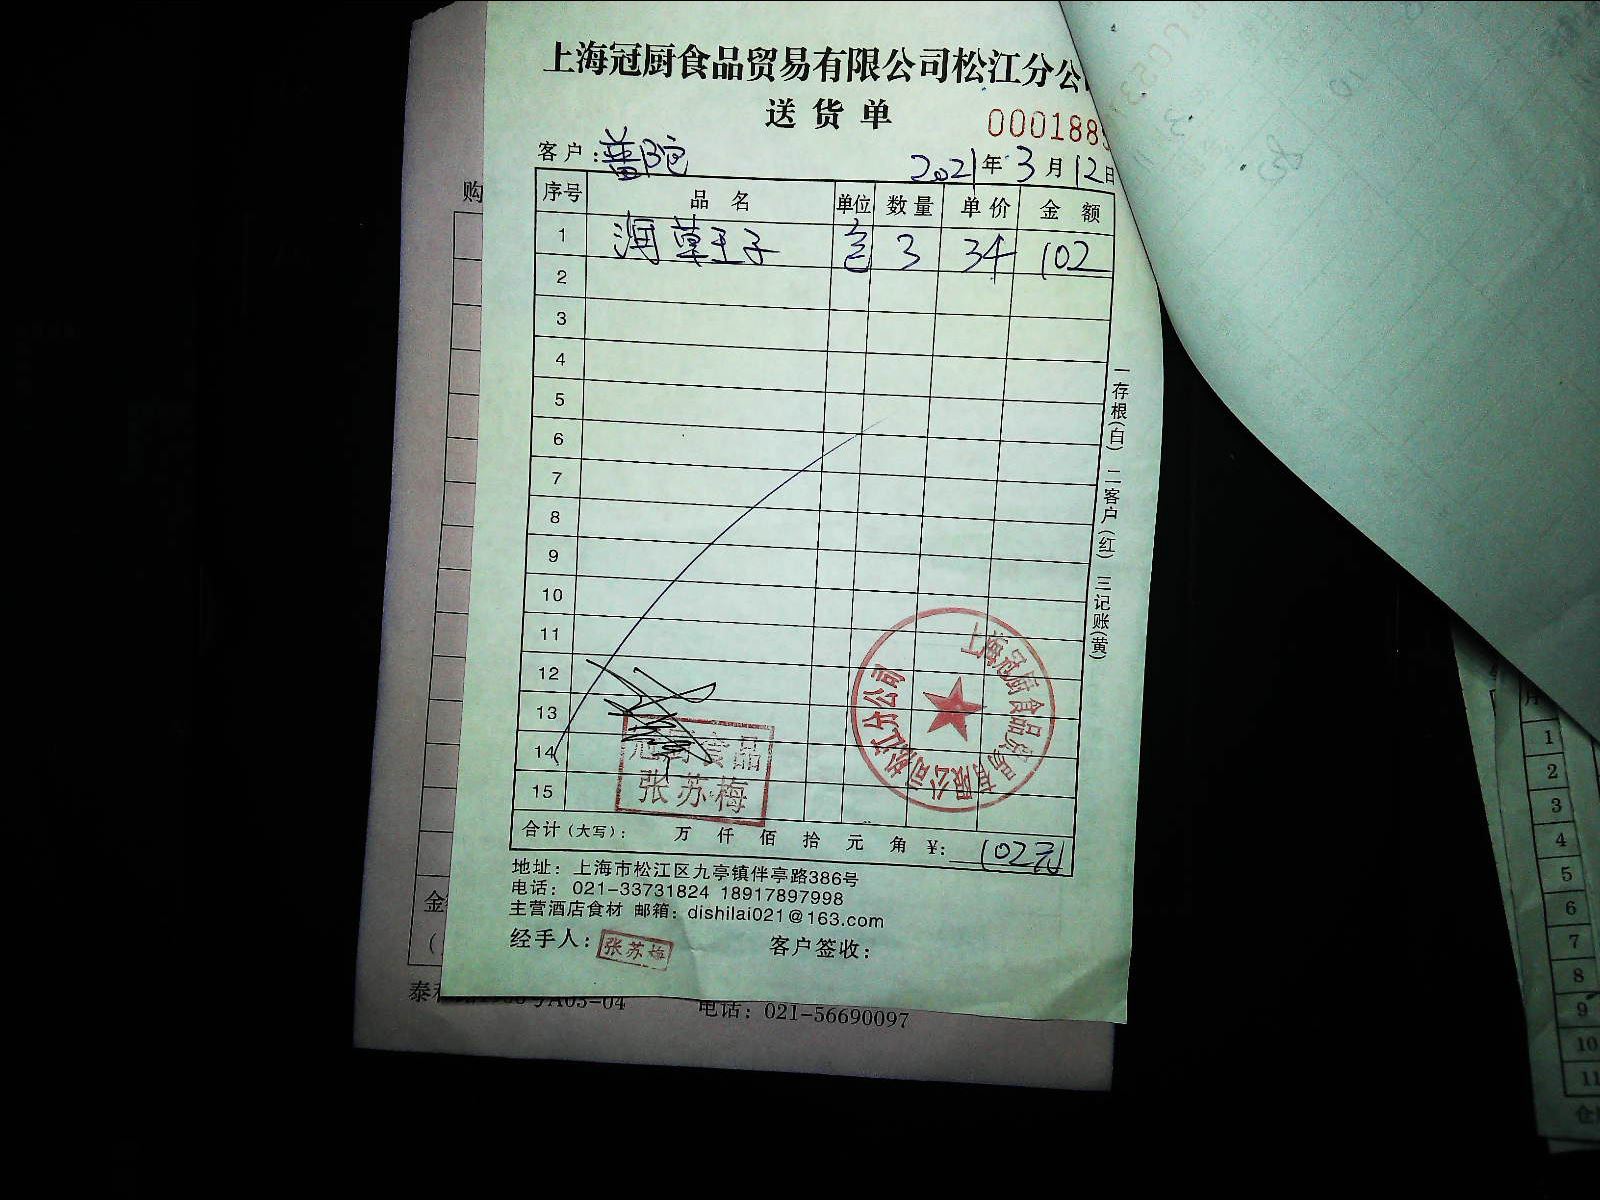 上海冠厨食品贸易有限公司松江分公
送货单
000188
客户:
2021年3月12日
序号 品名 单位 数量 单价 金额
1 草王子 包 3 34 102
2
3
4
5
6
7
8
9
10
11
12
13
14
15
一存根(白) 二客户(红) 三记账(黄)
上海冠厨食品贸易有限公司松江分公司
冠厨食品
张苏梅
合计(大写): 万 仟 佰 拾 元 角 ¥: 102元
地址: 上海市松江区九亭镇伴亭路386号
电话: 021-33731824 18917897998
主营酒店食材 邮箱: dishilai021@163.com
经手人: 张苏梅 客户签收:
购
金
泰
A03-04 电话: 021-56690097
1
2
3
4
5
6
7
8
9
10
11